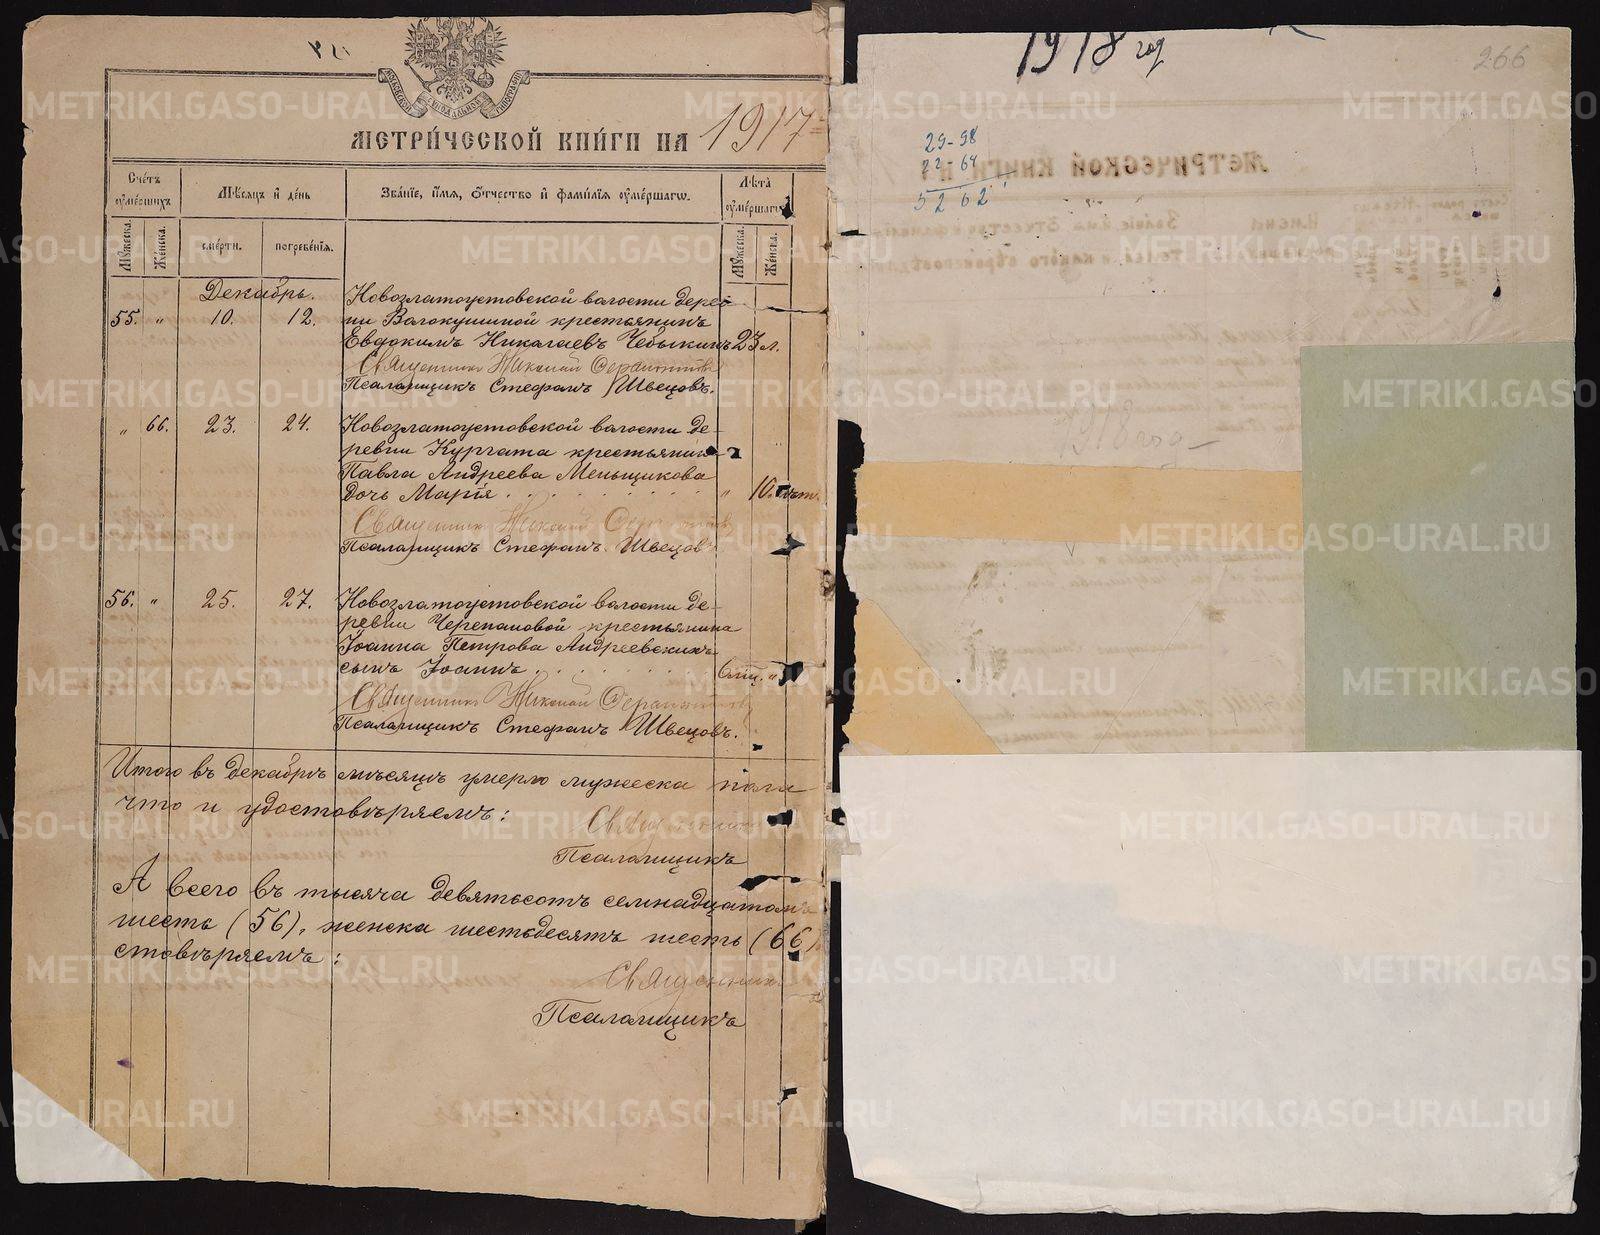 МЕТРИ́ЧЕСКОЙ КНИ́ГИ НА 1917
Счетъ
оумершихъ
Мѣсяцъ и день
Зва́нїе, и҆́мѧ, ѻ҆́тчество и҆ фамилїѧ оу҆ме́ршагѡ.
Лѣта
оумершагѡ
Мужеска.
Женска.
смерти.
погребенїѧ.
Мужеска.
Женска.
Декабрь.
Новозлатоустовской волости дерев
55. " 10. 12. ни Волокушиной крестьянинъ
Евдокимъ Николаевъ Чебыкинъ 23 л.
Священникъ Николай
Псаломщикъ Стефанъ Швецовъ.
" 66. 23. 24. Новозлатоустовской волости де-
ревни Кургата крестьянина
Павла Андреева Меньщикова
дочь Марія . . . . . . . " 10.
Священникъ Николай
Псаломщикъ Стефанъ Швецовъ
56. " 25. 27. Новозлатоустовской волости де-
ревни Черепановой крестьянина
Іоанна Петрова Андреевскихъ
сынъ Іоаннъ . . . . . "
Священникъ Николай
Псаломщикъ Стефанъ Швецовъ.
Итого въ декабрѣ мѣсяцѣ умерло мужеска пола
что и удостовѣряемъ:
Священникъ
Псаломщикъ
А всего въ тысяча девятьсотъ семнадцатомъ
шесть (56), женска шестьдесятъ шесть (66)
стовѣряемъ:
Священникъ
Псаломщикъ
1918 год
266
29-98
22-64
5262
1918 года
METRIKI.GASO-URAL.RU